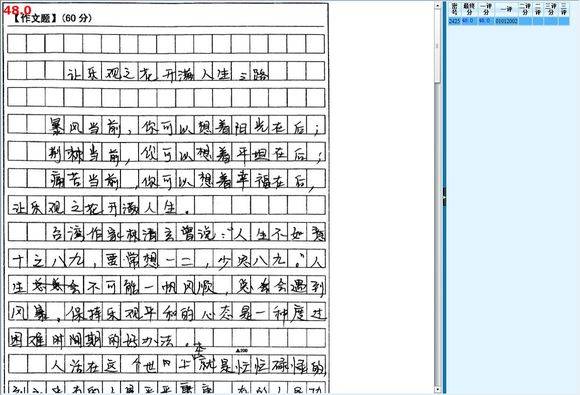 48.0
【作文题】(60分)
让乐观之花开满人生之路
暴风当前，你可以想着阳光在后；
荆棘当前，你可以想着平坦在后；
痛苦当前，你可以想着幸福在后，
让乐观之花开满人生。
台湾作家林清玄曾说："人生不如意
十之八九，要常想一二，少想八九。"人
生 不可能一帆风顺，总会遇到
风暴。保持乐观平和的心态是一种度过
困难时期的好办法。
▲200
人活在这个世 上 就是忙忙碌碌的，
密号 最终分 一评分 一评 二评分 二评 三评分 三评
2425 48.0 48.0 01012002